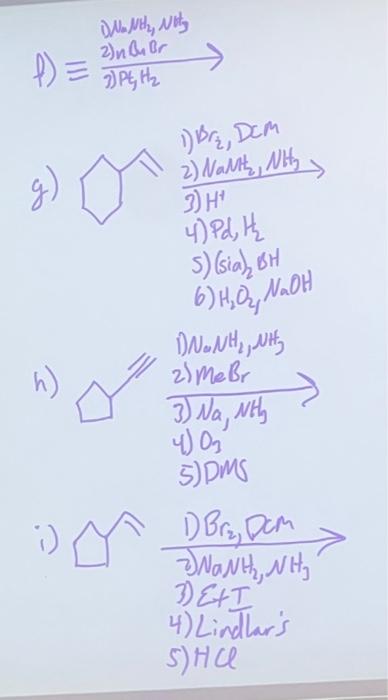 1)NaNH2, NH3
2)nBuBr
f) ≡
3)Pt, H2
1)Br2, DCM
2)NaNH2, NH3
g)
3)H+
4)Pd, H2
5)(sia)2BH
6)H2O2, NaOH
1)NaNH2, NH3
h)
2)MeBr
3)Na, NH3
4)O3
5)DMS
i)
1)Br2, DCM
2)NaNH2, NH3
3)EtI
4)Lindlar's
5)HCl